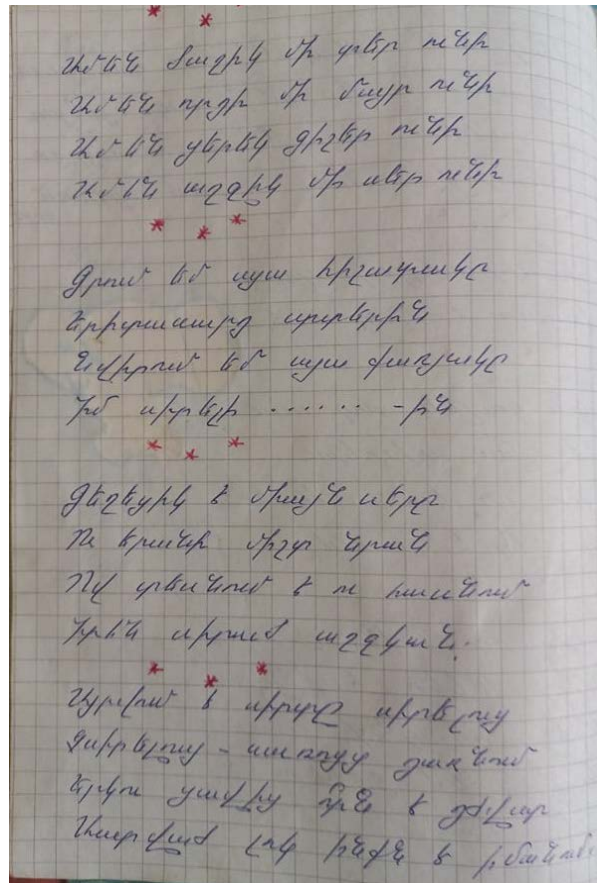 * *
Ամեն ծաղիկ մի տեր ունի
Ամեն որդի մի մայր ունի
Ամեն ցերեկ գիշեր ունի
Ամեն աղջիկ մի սեր ունի
* * *
Գրում եմ այս հիշատակը
Երիտասարդ սրտերին
Նվիրում եմ այս քառյակը
Իմ սիրելի ...... -ին
* * *
Գեղեցիկ է միայն սերը
Ու երանի միշտ նրան
Ով տեսնում է ու հասնում
Իրեն սիրած աղջկան:
* * *
Այրվում է սիրտը սիրելուց
Չսիրելուց - սառույց դառնում
Երկու ցավից որն է դժվար
Աստված լոկ ինքն է իմանում: